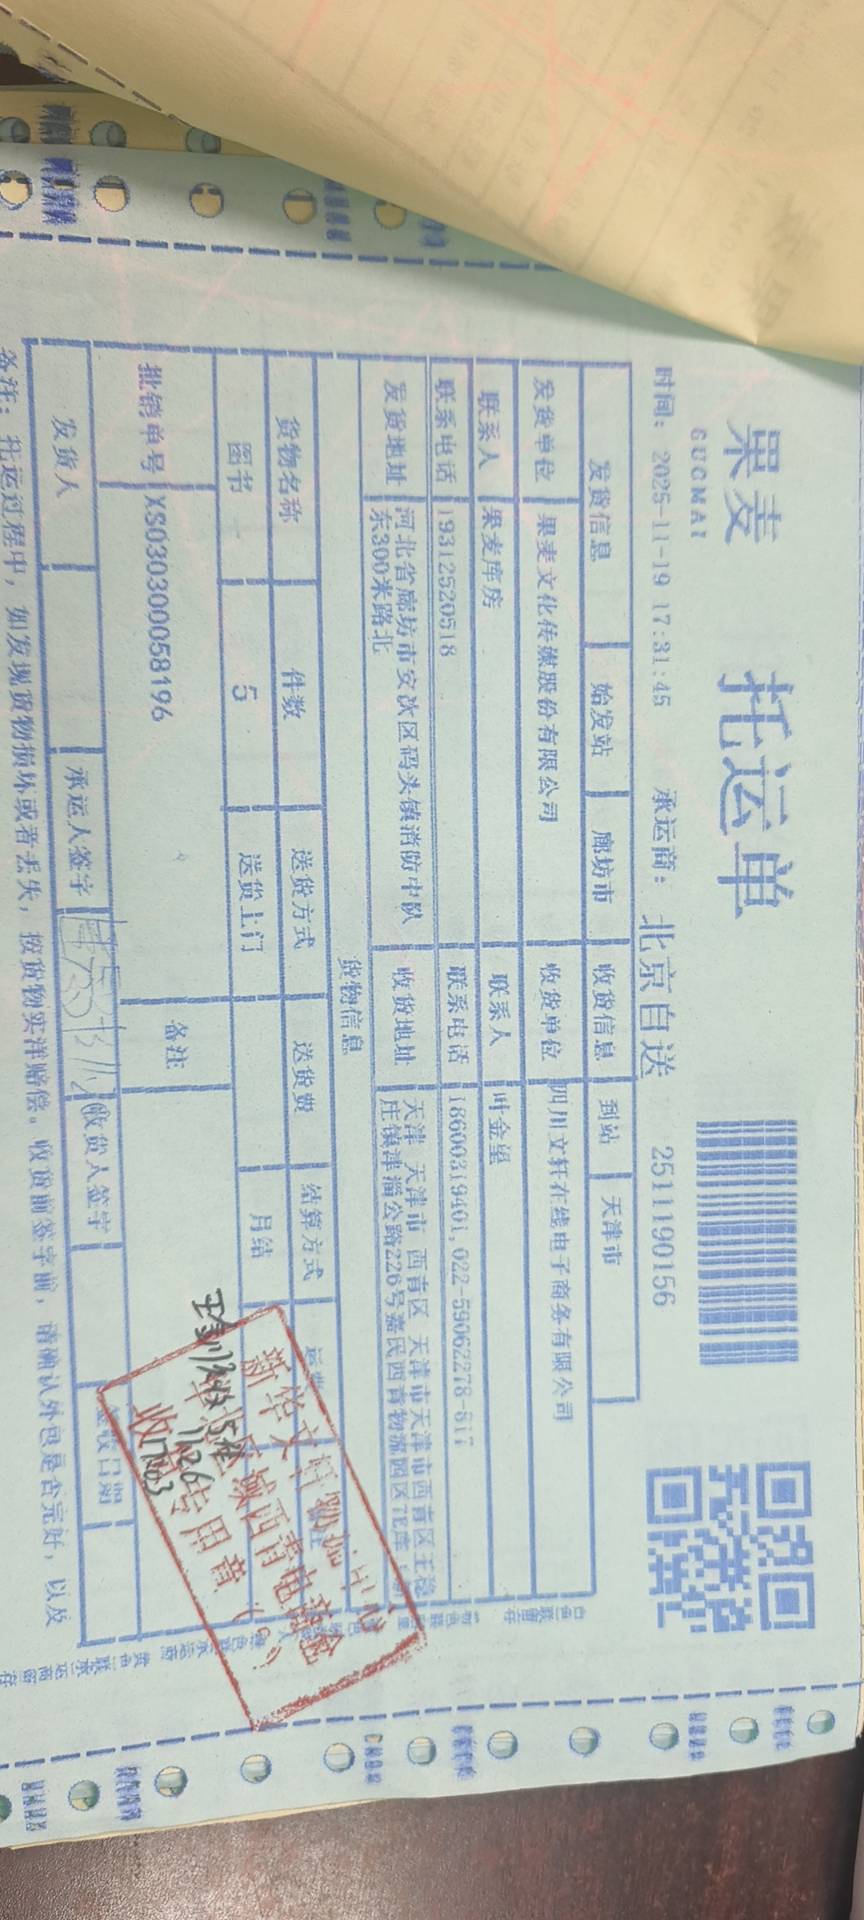 果麦
GUOMAI
托运单
时间: 2025-11-19 17:31:45 承运商: 北京自送 2511190156
发货信息 始发站 廊坊市 收货信息 到站 天津市
发货单位 果麦文化传媒股份有限公司 收货单位 四川文轩在线电子商务有限公司
联系人 果麦库房 联系人 叶金星
联系电话 19312520518 联系电话 18600319401,022-59062278-817
发货地址 河北省廊坊市安次区码头镇消防中队东300米路北 收货地址 天津 天津市 西青区 天津市天津市西青区王稳庄镇津淄公路226号嘉民西青物流园区7E库
货物信息
货物名称 件数 送货方式 送货费 结算方式 运费
图书 5 送货上门 月结
批销单号 XS030300058196 备注
发货人 承运人签字 收货人签字 签收日期
备注: 托运过程中, 如发现货物损坏或者丢失, 按货物实洋赔偿。收货前签字前, 请确认外包是否完好, 以及
新华文轩
收 专用章
11.26